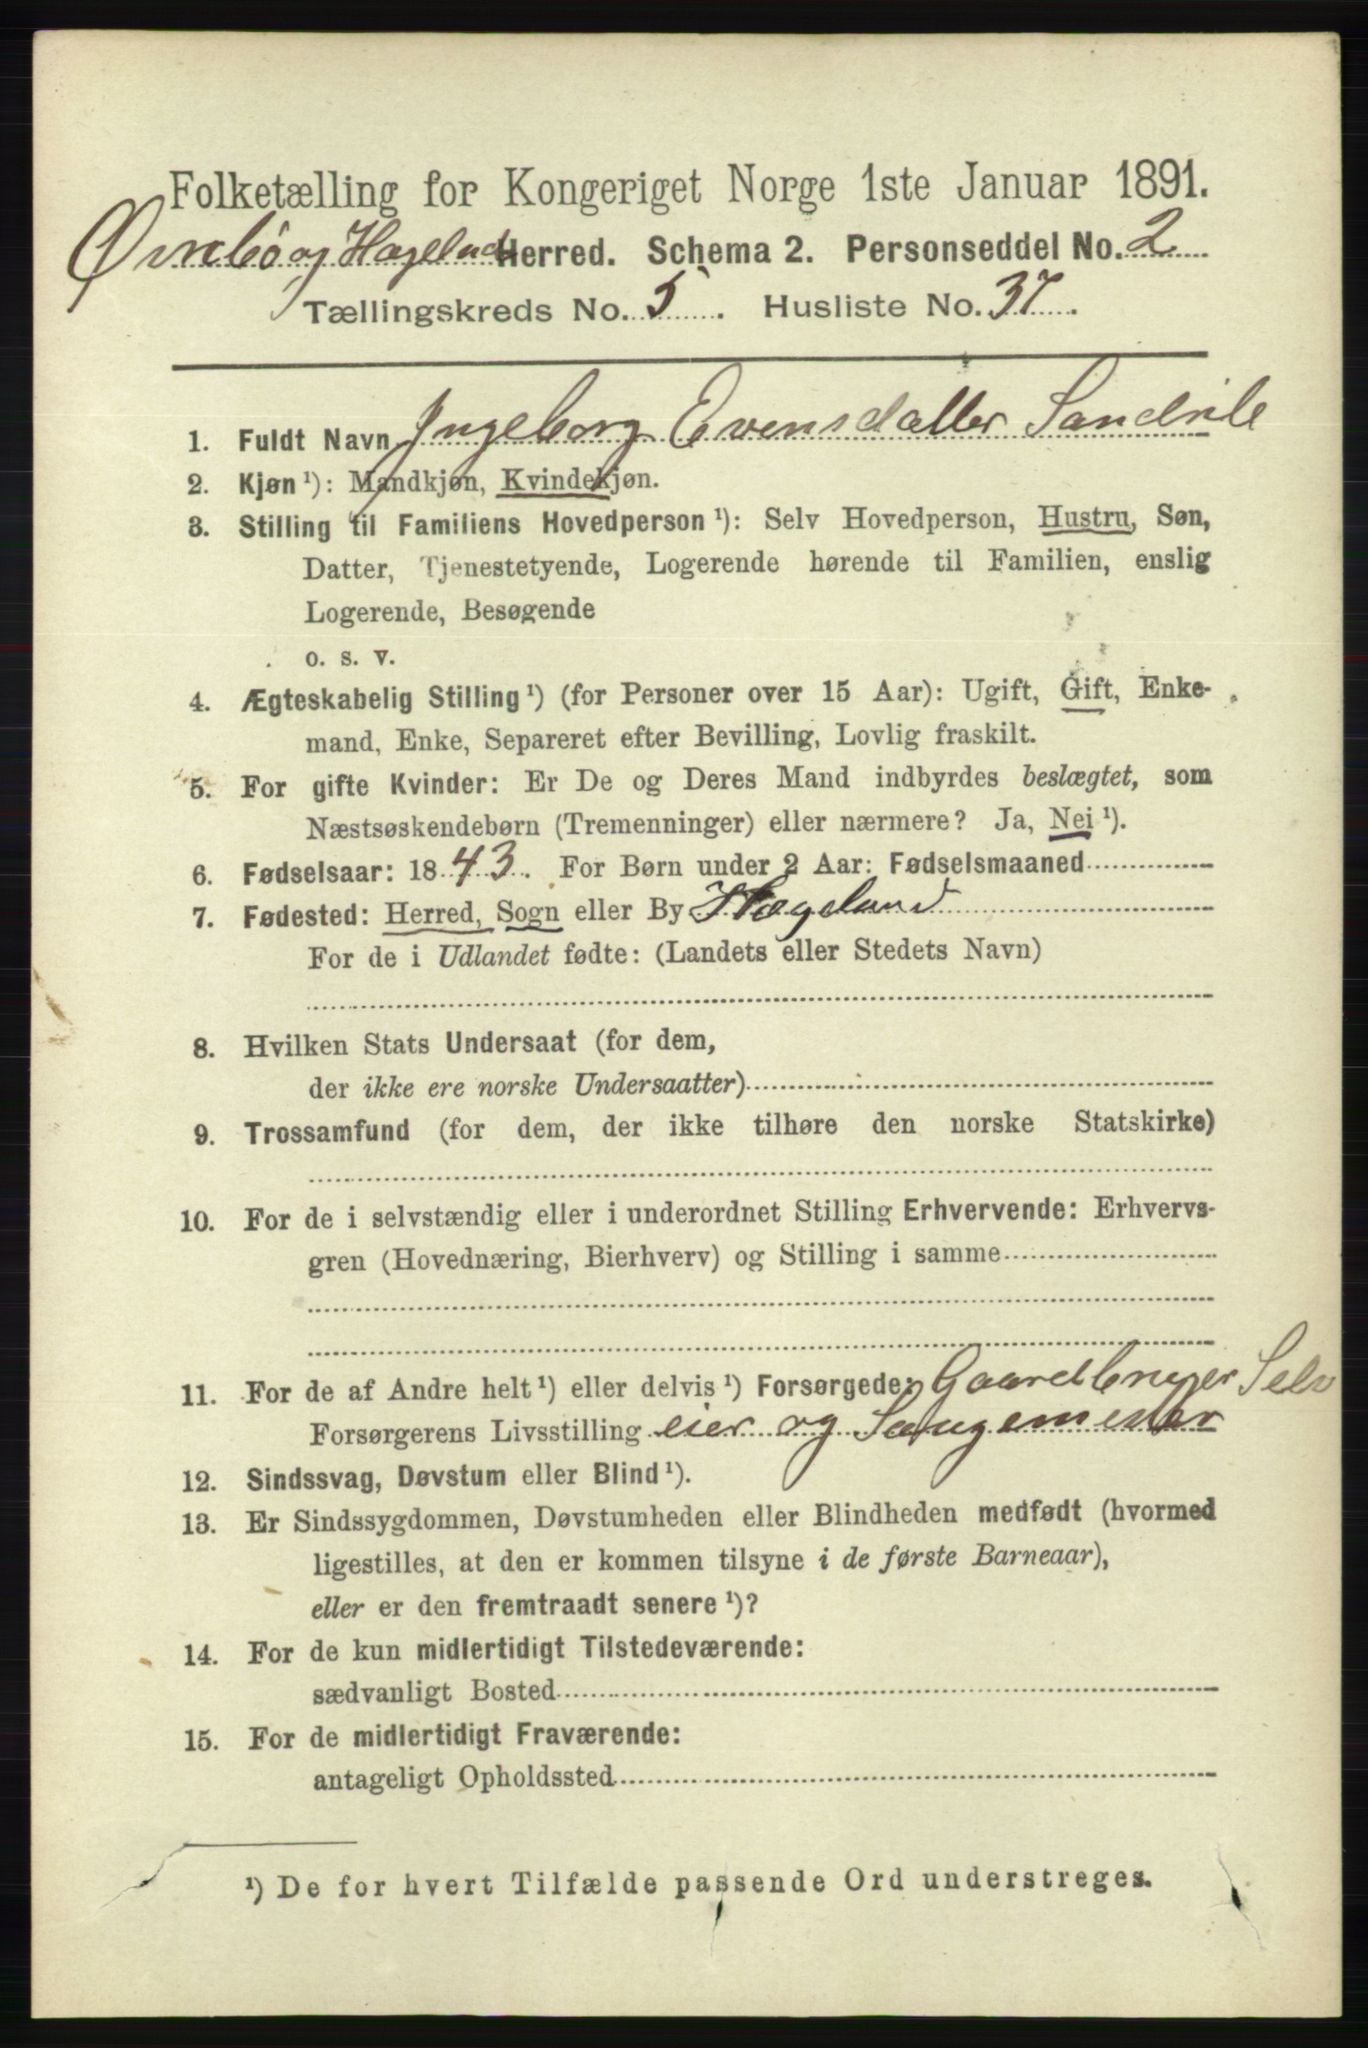 Folketælling for Kongeriget Norge 1ste Januar 1891.
Øvrebö og Hægeland Herred. Schema 2. Personseddel No. 2
Tællingskreds No. 5. Husliste No. 37.
1. Fuldt Navn Ingeborg Evensdatter Sandrile
2. Kjøn ¹): Mandkjøn, Kvindekjøn.
3. Stilling til Familiens Hovedperson ¹): Selv Hovedperson, Hustru, Søn,
Datter, Tjenestetyende, Logerende hørende til Familien, enslig
Logerende, Besøgende
o. s. v.
4. Ægteskabelig Stilling ¹) (for Personer over 15 Aar): Ugift, Gift, Enke-
mand, Enke, Separeret efter Bevilling, Lovlig fraskilt.
5. For gifte Kvinder: Er De og Deres Mand indbyrdes beslægtet, som
Næstsøskendebørn (Tremenninger) eller nærmere? Ja, Nei ¹).
6. Fødselsaar: 1843. For Børn under 2 Aar: Fødselsmaaned
7. Fødested: Herred, Sogn eller By Hægeland
For de i Udlandet fødte: (Landets eller Stedets Navn)
8. Hvilken Stats Undersaat (for dem,
der ikke ere norske Undersaatter)
9. Trossamfund (for dem, der ikke tilhøre den norske Statskirke)
10. For de i selvstændig eller i underordnet Stilling Erhvervende: Erhvervs-
gren (Hovednæring, Bierhverv) og Stilling i samme
11. For de af Andre helt ¹) eller delvis ¹) Forsørgede: Gaardbruger Selv
Forsørgerens Livsstilling eier og Saugemester
12. Sindssvag, Døvstum eller Blind ¹).
13. Er Sindssygdommen, Døvstumheden eller Blindheden medfødt (hvormed
ligestilles, at den er kommen tilsyne i de første Barneaar),
eller er den fremtraadt senere ¹)?
14. For de kun midlertidigt Tilstedeværende:
sædvanligt Bosted
15. For de midlertidigt Fraværende:
antageligt Opholdssted
¹) De for hvert Tilfælde passende Ord understreges.